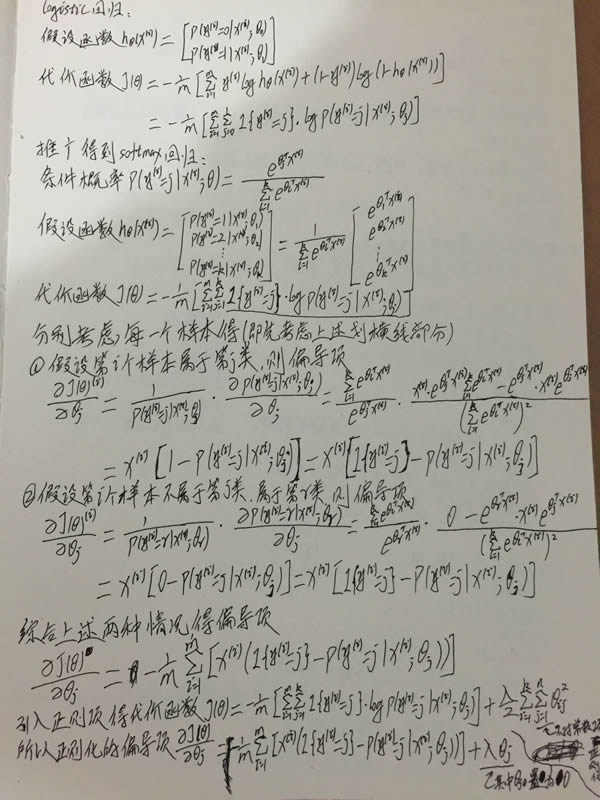 logistic回归:
假设函数 hθ(x⁽ⁱ⁾) = [P(y⁽ⁱ⁾=0|x⁽ⁱ⁾;θ) ; P(y⁽ⁱ⁾=1|x⁽ⁱ⁾;θ)]
代价函数 J(θ) = -1/m [Σᵢ₌₁ᵐ y⁽ⁱ⁾ log hθ(x⁽ⁱ⁾) + (1-y⁽ⁱ⁾) log(1-hθ(x⁽ⁱ⁾))]
= -1/m [Σᵢ₌₁ᵐ Σⱼ₌₀¹ 1{y⁽ⁱ⁾=j}·log P(y⁽ⁱ⁾=j|x⁽ⁱ⁾;θⱼ)]
推广得到softmax回归:
条件概率 P(y⁽ⁱ⁾=j|x⁽ⁱ⁾;θ) = e^(θⱼᵀx⁽ⁱ⁾) / Σₗ₌₁ᵏ e^(θₗᵀx⁽ⁱ⁾)
假设函数 hθ(x⁽ⁱ⁾) = [P(y⁽ⁱ⁾=1|x⁽ⁱ⁾;θ₁) ; P(y⁽ⁱ⁾=2|x⁽ⁱ⁾;θ₂) ; ⋮ ; P(y⁽ⁱ⁾=k|x⁽ⁱ⁾;θₖ)] = 1/Σₗ₌₁ᵏ e^(θₗᵀx⁽ⁱ⁾) [e^(θ₁ᵀx⁽ⁱ⁾) ; e^(θ₂ᵀx⁽ⁱ⁾) ; ⋮ ; e^(θₖᵀx⁽ⁱ⁾)]
代价函数 J(θ) = -1/m [Σᵢ₌₁ᵐ Σⱼ₌₁ᵏ 1{y⁽ⁱ⁾=j}·log P(y⁽ⁱ⁾=j|x⁽ⁱ⁾;θⱼ)]
分别考虑,每一个样本得(即先考虑上述划横线部分)
① 假设第i个样本属于第j类,则偏导项
∂J(θ)⁽ⁱ⁾/∂θⱼ = 1/P(y⁽ⁱ⁾=j|x⁽ⁱ⁾;θⱼ) · ∂P(y⁽ⁱ⁾=j|x⁽ⁱ⁾;θⱼ)/∂θⱼ = Σₗ₌₁ᵏ e^(θₗᵀx⁽ⁱ⁾) / e^(θⱼᵀx⁽ⁱ⁾) · (x⁽ⁱ⁾·e^(θⱼᵀx⁽ⁱ⁾) Σₗ₌₁ᵏ e^(θₗᵀx⁽ⁱ⁾) - e^(θⱼᵀx⁽ⁱ⁾)·x⁽ⁱ⁾e^(θⱼᵀx⁽ⁱ⁾)) / (Σₗ₌₁ᵏ e^(θₗᵀx⁽ⁱ⁾))²
= x⁽ⁱ⁾[1-P(y⁽ⁱ⁾=j|x⁽ⁱ⁾;θⱼ)] = x⁽ⁱ⁾[1{y⁽ⁱ⁾=j}-P(y⁽ⁱ⁾=j|x⁽ⁱ⁾;θⱼ)]
② 假设第i个样本不属于第j类,属于第r类,则偏导项
∂J(θ)⁽ⁱ⁾/∂θⱼ = 1/P(y⁽ⁱ⁾=r|x⁽ⁱ⁾;θᵣ) · ∂P(y⁽ⁱ⁾=r|x⁽ⁱ⁾;θᵣ)/∂θⱼ = Σₗ₌₁ᵏ e^(θₗᵀx⁽ⁱ⁾) / e^(θᵣᵀx⁽ⁱ⁾) · (0 - e^(θᵣᵀx⁽ⁱ⁾)·x⁽ⁱ⁾e^(θⱼᵀx⁽ⁱ⁾)) / (Σₗ₌₁ᵏ e^(θₗᵀx⁽ⁱ⁾))²
= x⁽ⁱ⁾[0-P(y⁽ⁱ⁾=j|x⁽ⁱ⁾;θⱼ)] = x⁽ⁱ⁾[1{y⁽ⁱ⁾=j}-P(y⁽ⁱ⁾=j|x⁽ⁱ⁾;θⱼ)]
综合上述两种情况得偏导项
∂J(θ)/∂θⱼ = -1/m Σᵢ₌₁ᵐ [x⁽ⁱ⁾(1{y⁽ⁱ⁾=j}-P(y⁽ⁱ⁾=j|x⁽ⁱ⁾;θⱼ))]
引入正则项得代价函数 J(θ) = -1/m [Σᵢ₌₁ᵐ Σⱼ₌₁ᵏ 1{y⁽ⁱ⁾=j}·log P(y⁽ⁱ⁾=j|x⁽ⁱ⁾;θⱼ)] + λ/2 Σᵢ₌₁ᵏ Σⱼ₌₁ⁿ θᵢⱼ²
所以正则化的偏导项 ∂J(θ)/∂θⱼ = -1/m Σᵢ₌₁ᵐ [x⁽ⁱ⁾(1{y⁽ⁱ⁾=j}-P(y⁽ⁱ⁾=j|x⁽ⁱ⁾;θⱼ))] + λθⱼ